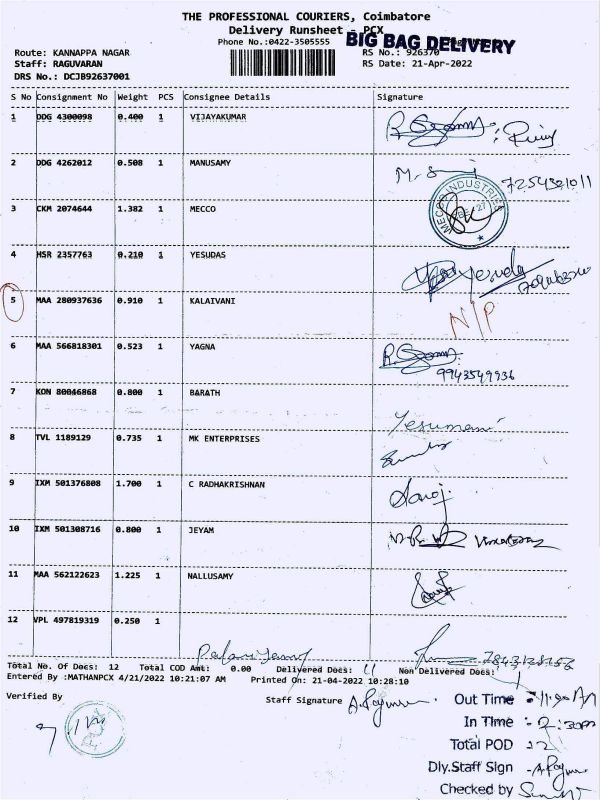 THE PROFESSIONAL COURIERS, Coimbatore
Delivery Runsheet - PCX
Phone No.:0422-3505555
BIG BAG DELIVERY
Route: KANNAPPA NAGAR
RS No.: 926370
Staff: RAGUVARAN
RS Date: 21-Apr-2022
DRS No.: DCJB92637001
S No Consignment No Weight PCS Consignee Details Signature
1 DDG 4300098 0.400 1 VIJAYAKUMAR
2 DDG 4262012 0.508 1 MANUSAMY
3 CKM 2074644 1.382 1 MECCO
MECCO INDUSTRIES
4 HSR 2357763 0.210 1 YESUDAS
Yesudas
5 MAA 280937636 0.910 1 KALAIVANI N/P
6 MAA 566818301 0.523 1 YAGNA
9943549936
7 KON 80046868 0.800 1 BARATH
Yesumani
8 TVL 1189129 0.735 1 MK ENTERPRISES
9 IXM 501376808 1.700 1 C RADHAKRISHNAN
Saroj
10 IXM 501308716 0.800 1 JEYAM
11 MAA 562122623 1.225 1 NALLUSAMY
12 VPL 497819319 0.250 1
Total No. Of Docs: 12 Total COD Amt: 0.00 Delivered Docs: 11 Non Delivered Docs: 1
Entered By :MATHANPCX 4/21/2022 10:21:07 AM Printed On: 21-04-2022 10:28:10
Verified By Staff Signature
Out Time
In Time
Total POD 12
Dly.Staff Sign
Checked by